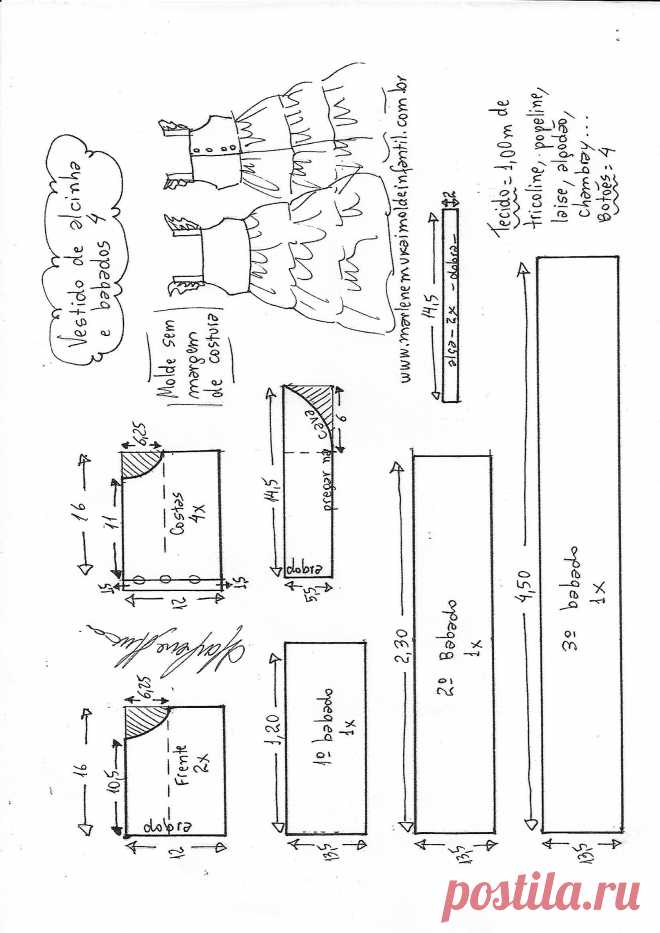 Vestido de alcinha
e babados 4
Molde sem
margem
de costura
www.marlenemukaimoldeinfantil.com.br
Tecido = 1,00m de
tricoline, popeline,
laise, algodão,
chambray...
Botões = 4
14,5
2
alça - 2x - dobra -
16
11
6,25
Costas
4x
15
15
12
14,5
pregar na cava
6
dobra
5,5
16
10,5
6,25
Frente
2x
dobra
12
1,20
1º babado
1x
13,5
2,30
2º Babado
1x
13,5
4,50
3º babado
1x
13,5
postila.ru